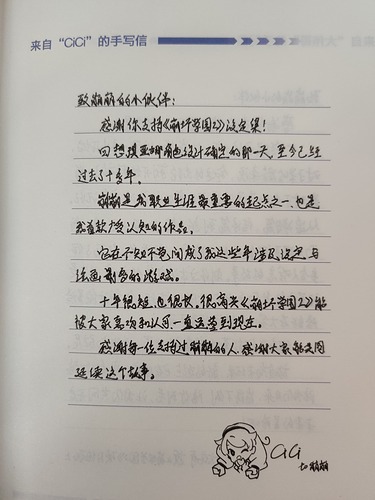 来自“CiCi”的手写信
致崩崩的小伙伴：
感谢你支持《崩坏学园2》设定集！
回想琪亚娜角色设计确定的那一天，至今已经
过去了十多年。
崩崩是我职业生涯最重要的起点之一，也是
我首款广受认知的作品。
它在不知不觉间成了我这些年涉及设定与
绘画最多的游戏。
十年很短，也很长。很高兴《崩坏学园2》能
被大家喜欢和认可，一直运营到现在。
感谢每一位支持过崩崩的人，感谢大家能共同
延续这个故事。
CiCi
to 崩崩